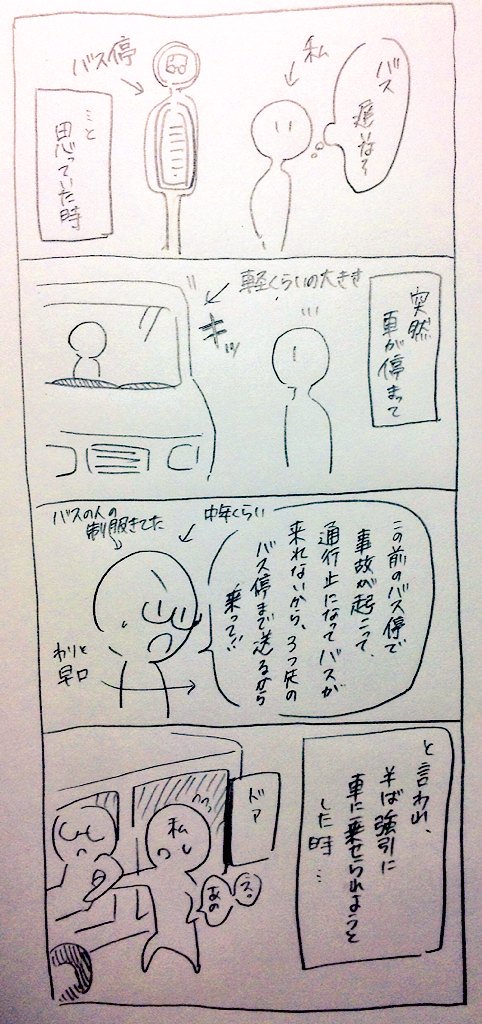 バス
遅いな〜
私
バス停
…と
思っていた時
突然
車が停まって
軽くらいの大きさ
キッ
この前のバス停で
事故が起こって、
通行止になってバスが
来れないから、3つ先の
バス停まで送るから
乗って!!
中年くらい
バスの人の
制服きてた
わりと
早口
と言われ、
半ば強引に
車に乗せられようと
した時…
ドア
私
えっ
あの